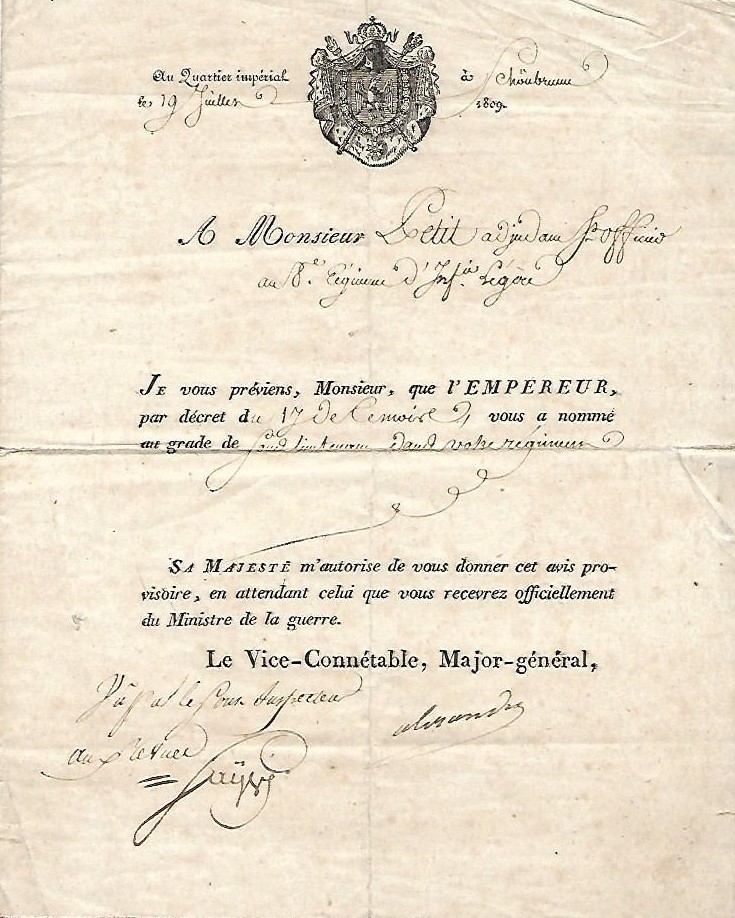 Au Quartier impérial à Schönbrunn
le 19 Juillet 1809.
A Monsieur Petit adjudant Sr. officier
au 8.e Régiment d'Inf.ie Légère
JE vous préviens, Monsieur, que l'EMPEREUR,
par décret du 17 de ce mois, vous a nommé
au grade de Sous lieutenant dans votre régiment
SA MAJESTÉ m'autorise de vous donner cet avis pro-
visoire, en attendant celui que vous recevrez officiellement
du Ministre de la guerre.
Le Vice-Connétable, Major-général,
Vu par le Sous Inspecteur
aux Revues
alexandre